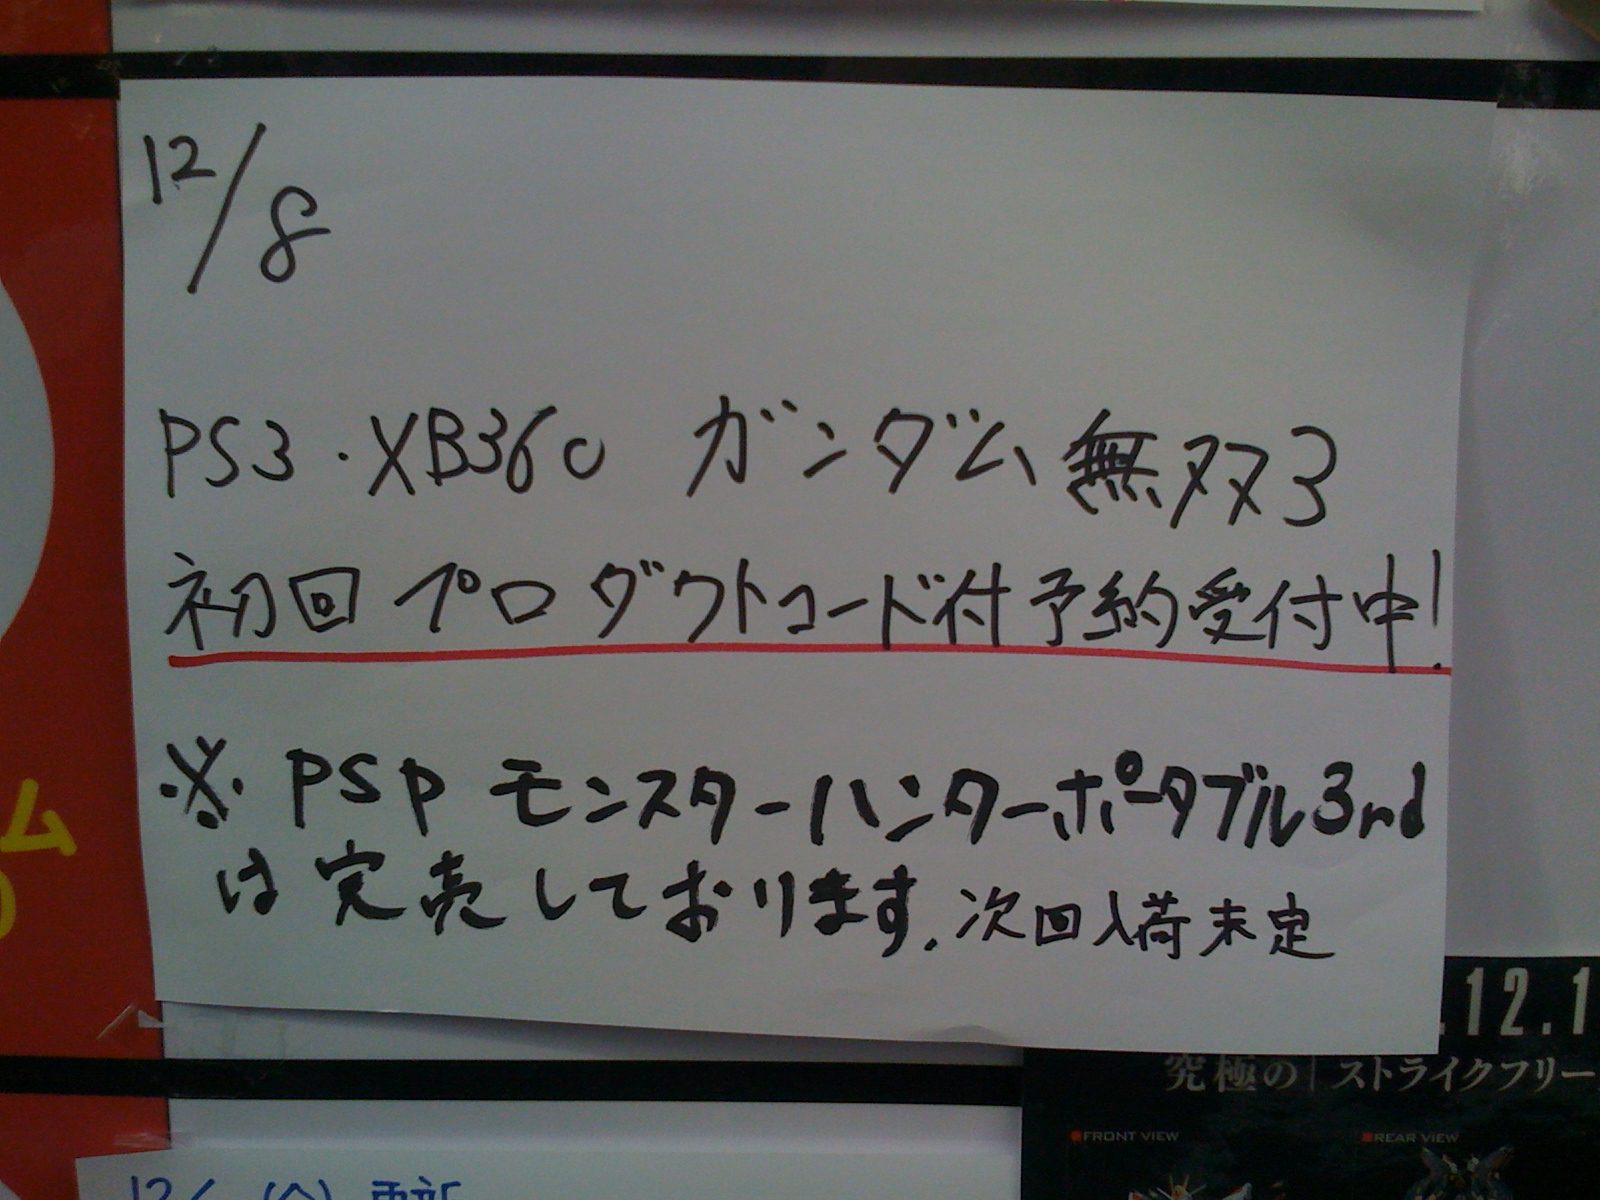 12/8
PS3・XB360 ガンダム無双3
初回プロダクトコード付予約受付中!
※PSP モンスターハンターポータブル3rd
は完売しております.次回入荷未定
ム
.12.1
究極の|ストライクフリー
FRONT VIEW
REAR VIEW